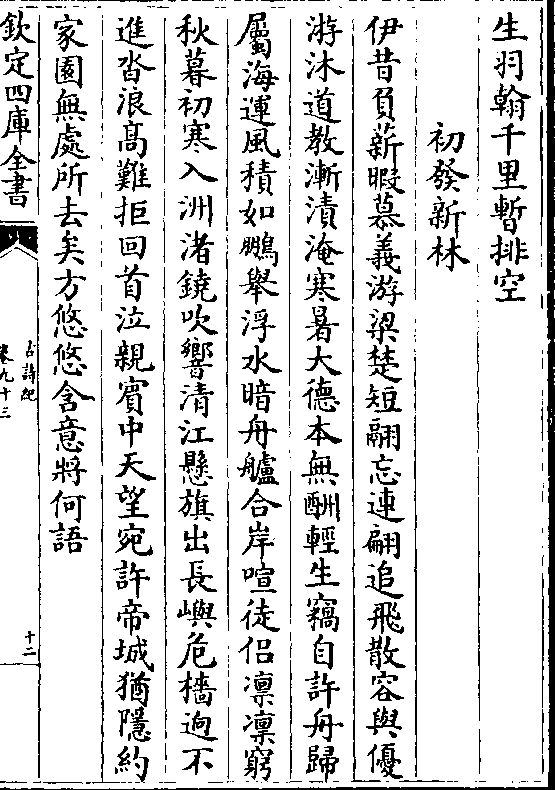 生羽翰千里暫排空
初發新林
伊昔負薪暇慕義游梁楚短翮忘連翩追飛散容與優
游沐道教漸漬淹寒暑大德本無酬輕生竊自許舟歸
屬海運風積如鵬舉浮水暗舟艫合岸喧徒侶凛凛窮
秋暮初寒入洲渚鐃吹響清江懸旗出長嶼危檣迥不
進沓浪高難拒回首泣親賔中天望宛許帝城猶隱約
家園無處所去矣方悠悠含意將何語
欽定四庫全書
古詩紀
卷九十三
十二